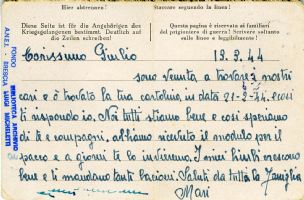 Hier abtrennen!
Staccare seguendo la linea!
Diese Seite ist für die Angehörigen des Kriegsgefangenen bestimmt. Deutlich auf die Zeilen schreiben!
Questa pagina è riservata ai familiari del prigioniero di guerra! Scrivere soltanto sulle linee e leggibilmente!
Carissimo Giulio 13.3.44
sono venuta a trovare i nostri
cari e ò trovato la tua cartolina in data 21-2-44. e così
ti rispondo io. Noi tutti stiamo bene e così speriamo
di te e compagni, abbiamo ricevuto il modulo per il
pacco e a giorni te lo invieremo. I miei bimbi crescono
bene e ti mandano tanti bacioni. Saluti da tutta la famiglia
Mari
FONDO
BIBLIOTECA ARCHIVIO
LUIGI MICHELETTI
BRESCIA